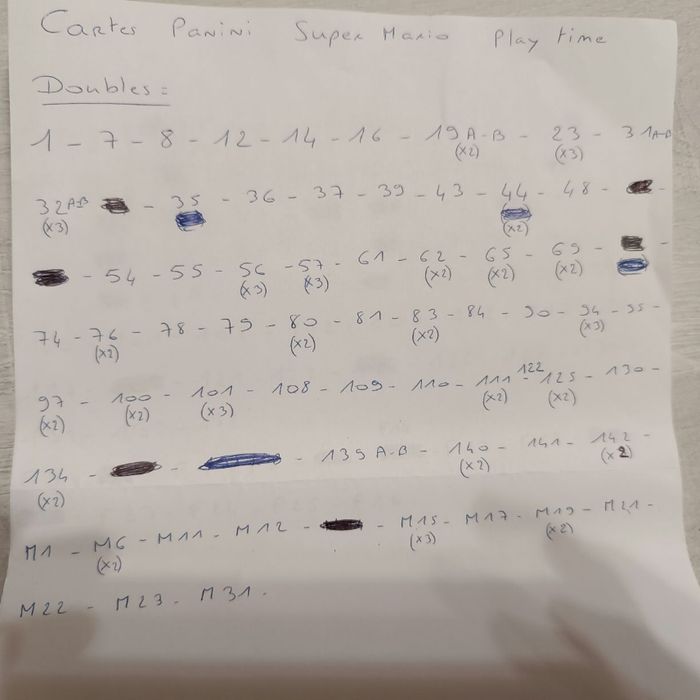 Cartes Panini Super Mario Play time
Doubles :
1 - 7 - 8 - 12 - 14 - 16 - 19 A-B - 23 - 31 A-B
(x2) (x3)
32 A-B - 35 - 36 - 37 - 39 - 43 - 44 - 48 -
(x3) (x2)
- 54 - 55 - 56 - 57 - 61 - 62 - 65 - 69 -
(x3) (x3) (x2) (x2) (x2)
74 - 76 - 78 - 79 - 80 - 81 - 83 - 84 - 90 - 94 - 95 -
(x2) (x2) (x2) (x3)
97 - 100 - 101 - 108 - 109 - 110 - 111 - 122 125 - 130 -
(x2) (x2) (x3) (x2) (x2)
134 - - - 139 A-B - 140 - 141 - 142 -
(x2) (x2) (x2)
M1 - M6 - M11 - M12 - - M15 - M17 - M19 - M21 -
(x2) (x3) (x2)
M22 - M23 - M31 .